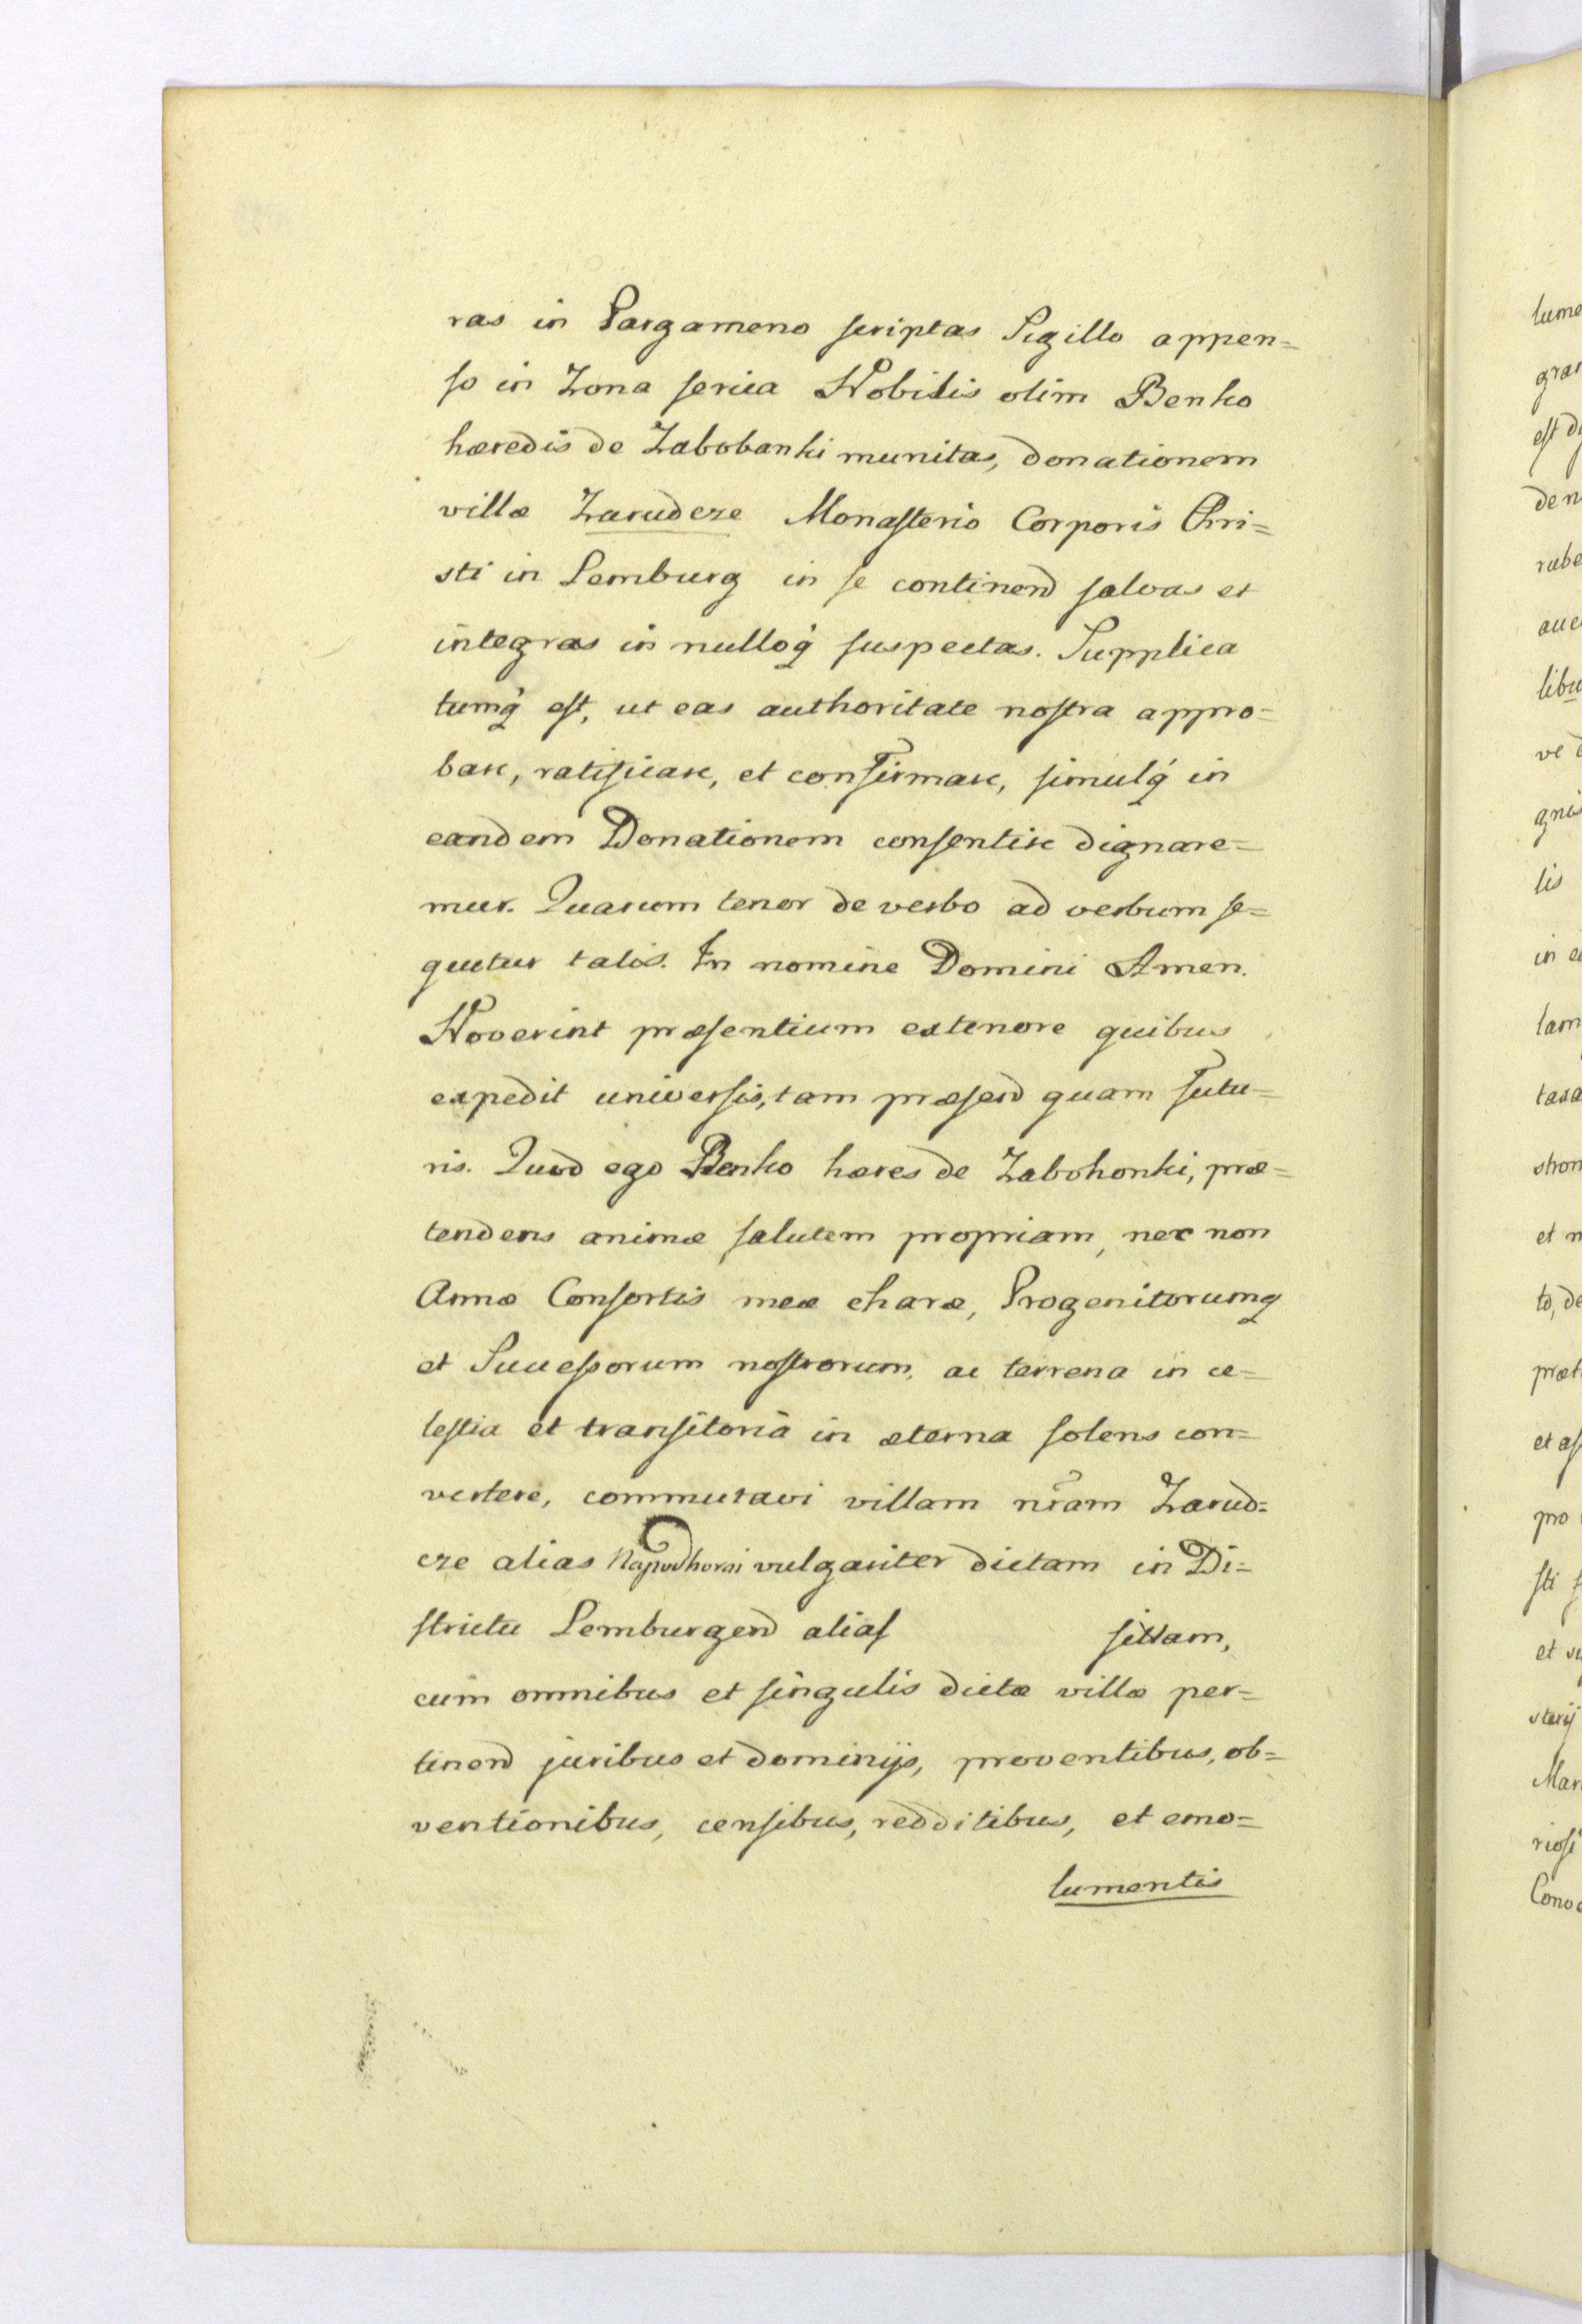 ras in Pargameno scriptas Sigillo appen=
so in Zona serica Nobilis olim Benko
hæredis de Zabobanki munitas, donationem
villæ Zarudcze Monasterio Corporis Chri=
sti in Lemburg in se continend salvas et
integras in nulloq́ suspectas. Supplica
tumq́ est, ut eas authoritate nostra appro=
bare, ratificare, et confirmare, simulq́ in
eandem Donationem consentire dignare=
mur. Quarum tenor de verbo ad verbum se=
quitur talis. In nomine Domini Amen.
Noverint præsentium extenore quibus
expedit universis, tam præsend quam futu=
ris. Quod ego Benko hæres de Zabohonki, præ=
tendens animæ salutem propriam, nec non
Annæ Consortis meæ charæ, Progenitorumq
et Successorum nostrorum, ac terrena in ce=
lestia et transitoria in æterna solens con=
vertere, commutavi villam nr̃am Zarud=
cze alias vulgariter dictam in Di=
strictu Lemburgend alias sittam,
cum omnibus et singulis dictæ villæ per=
tinend juribus et dominijs, proventibus, ob=
ventionibus, censibus, redditibus, et emo=
lumentis
lume
gran
est
de n
rube
auc
libu
ve
gnis
lis
in e
tam
taxa
stron
et n
to, de
præt
et as
pro
sti
et
sterij
Mar
riosi
Conve